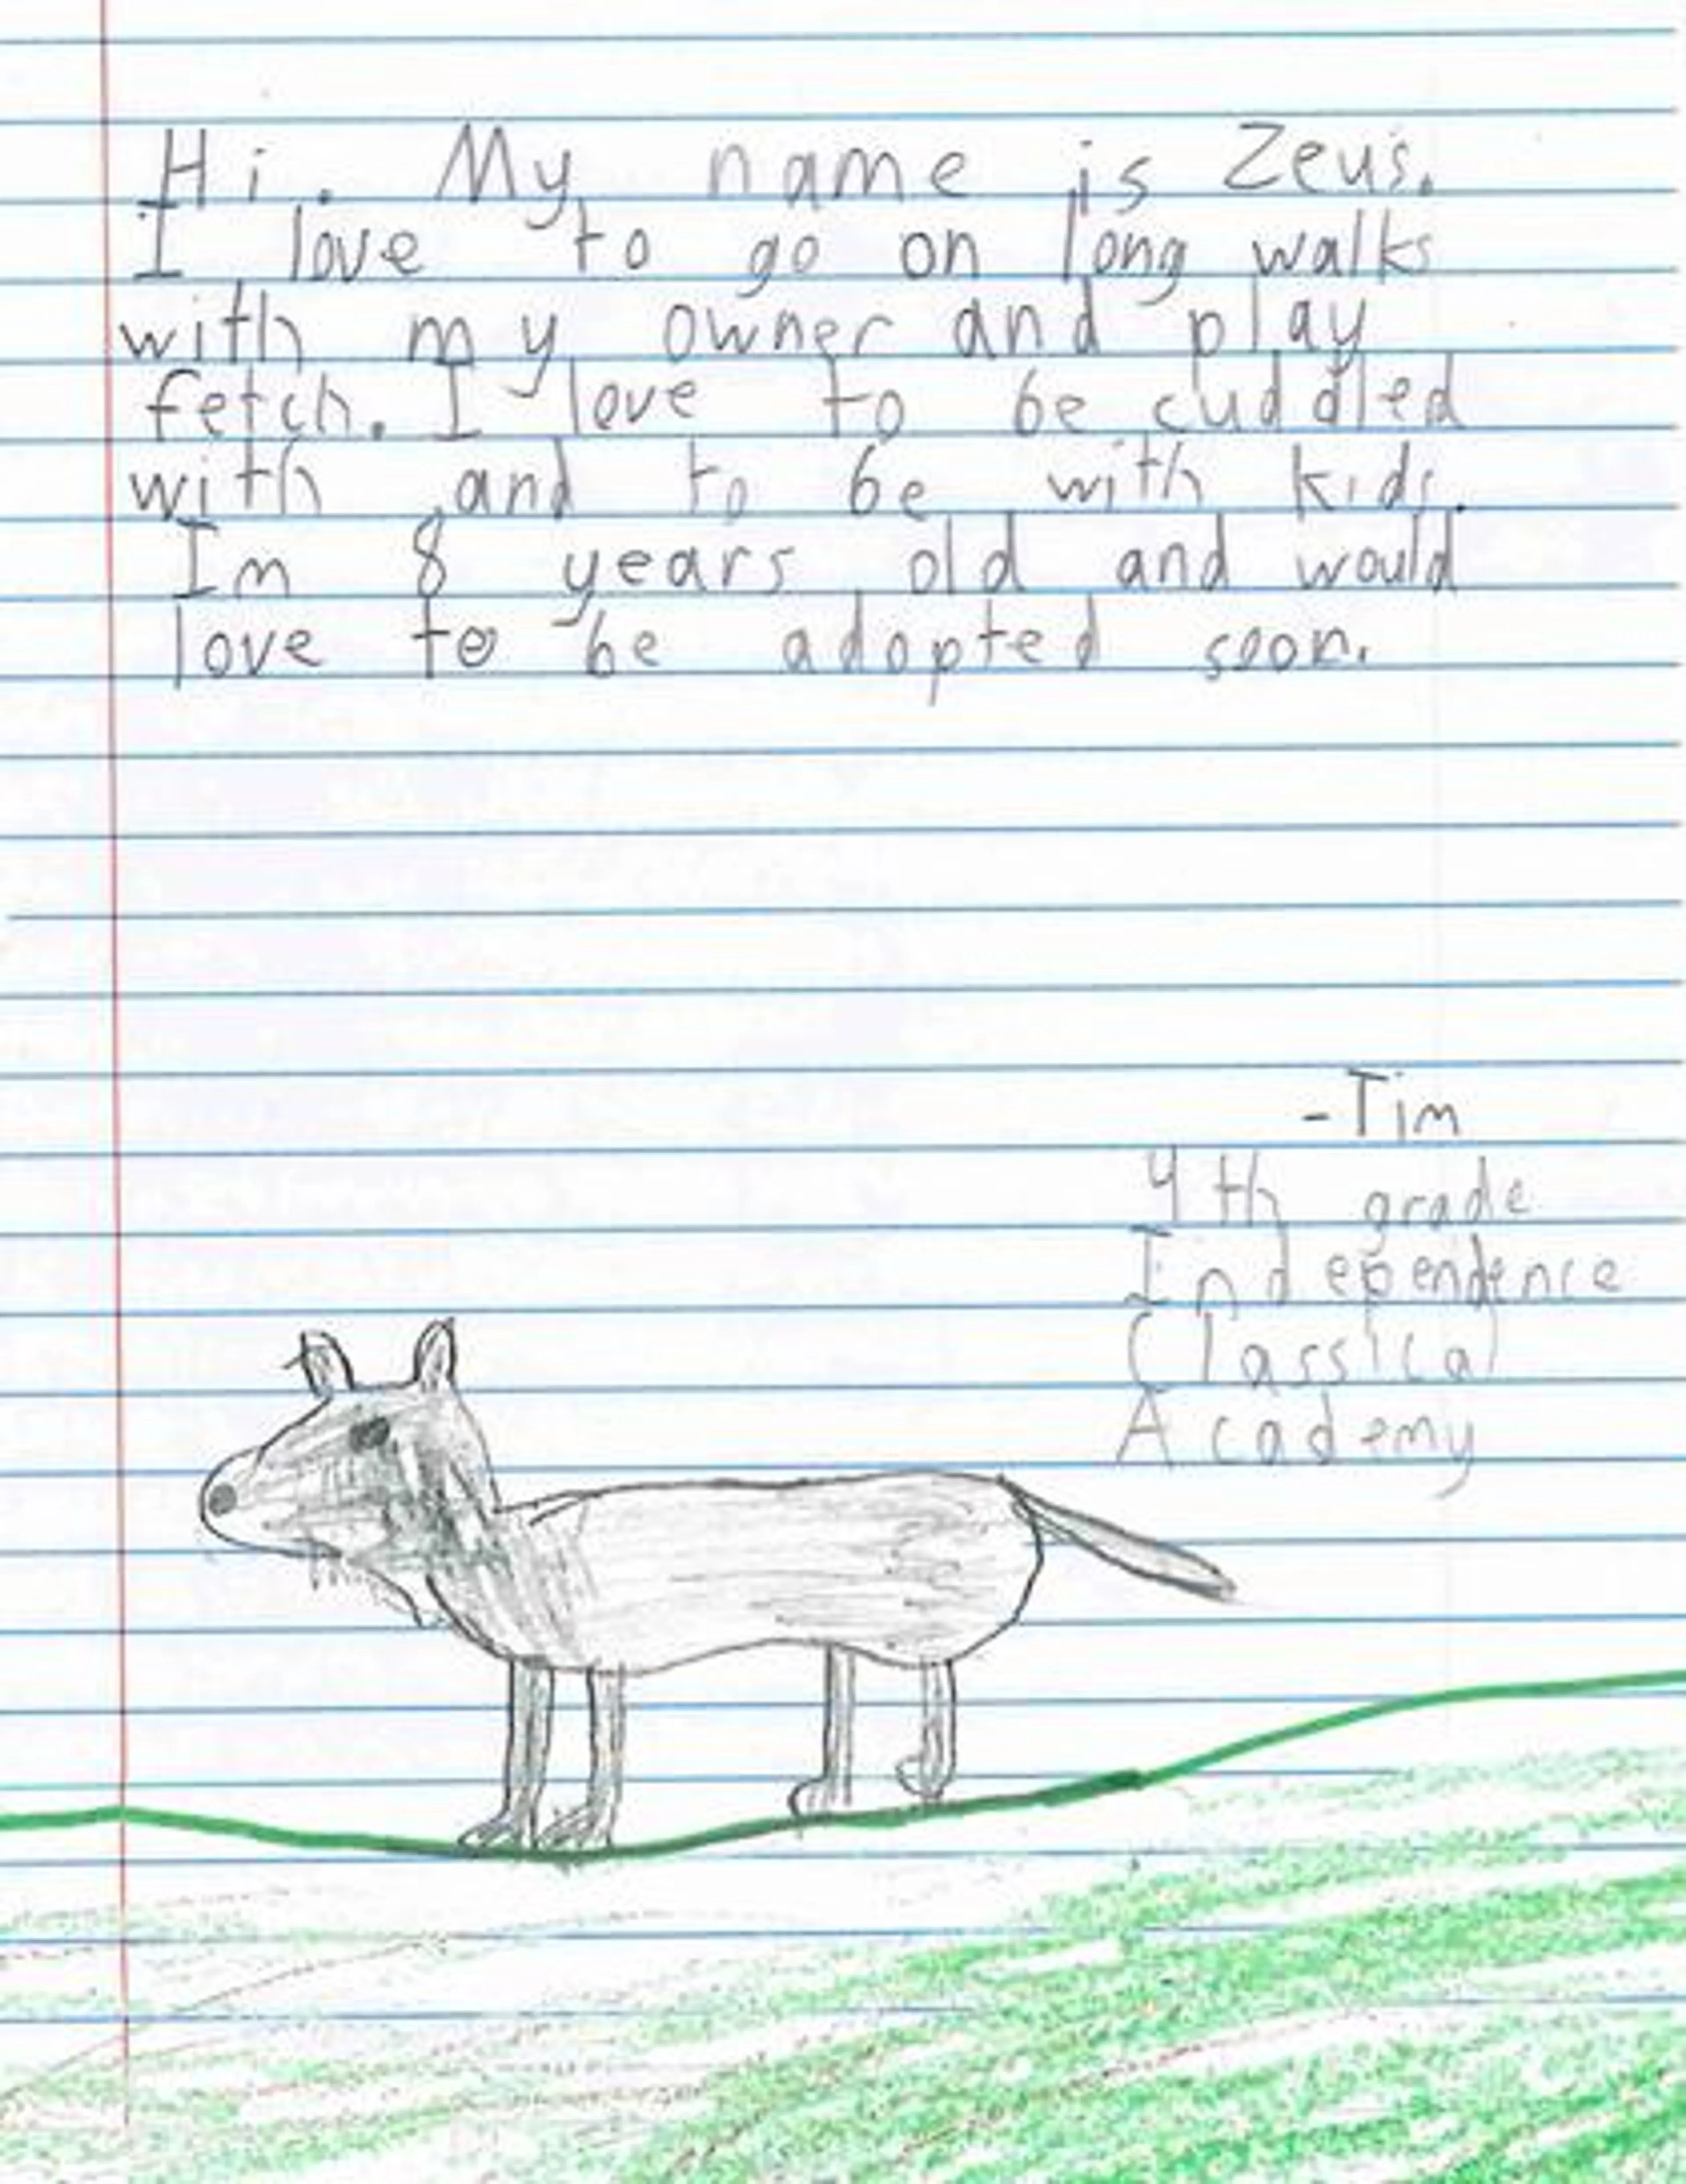 Hi. My name is Zeus.
I love to go on long walks
with my owner and play
fetch. I love to be cuddled
with and to be with kids.
Im 8 years old and would
love to be adopted soon.
-Tim
4th grade
Independence
Classical
Academy